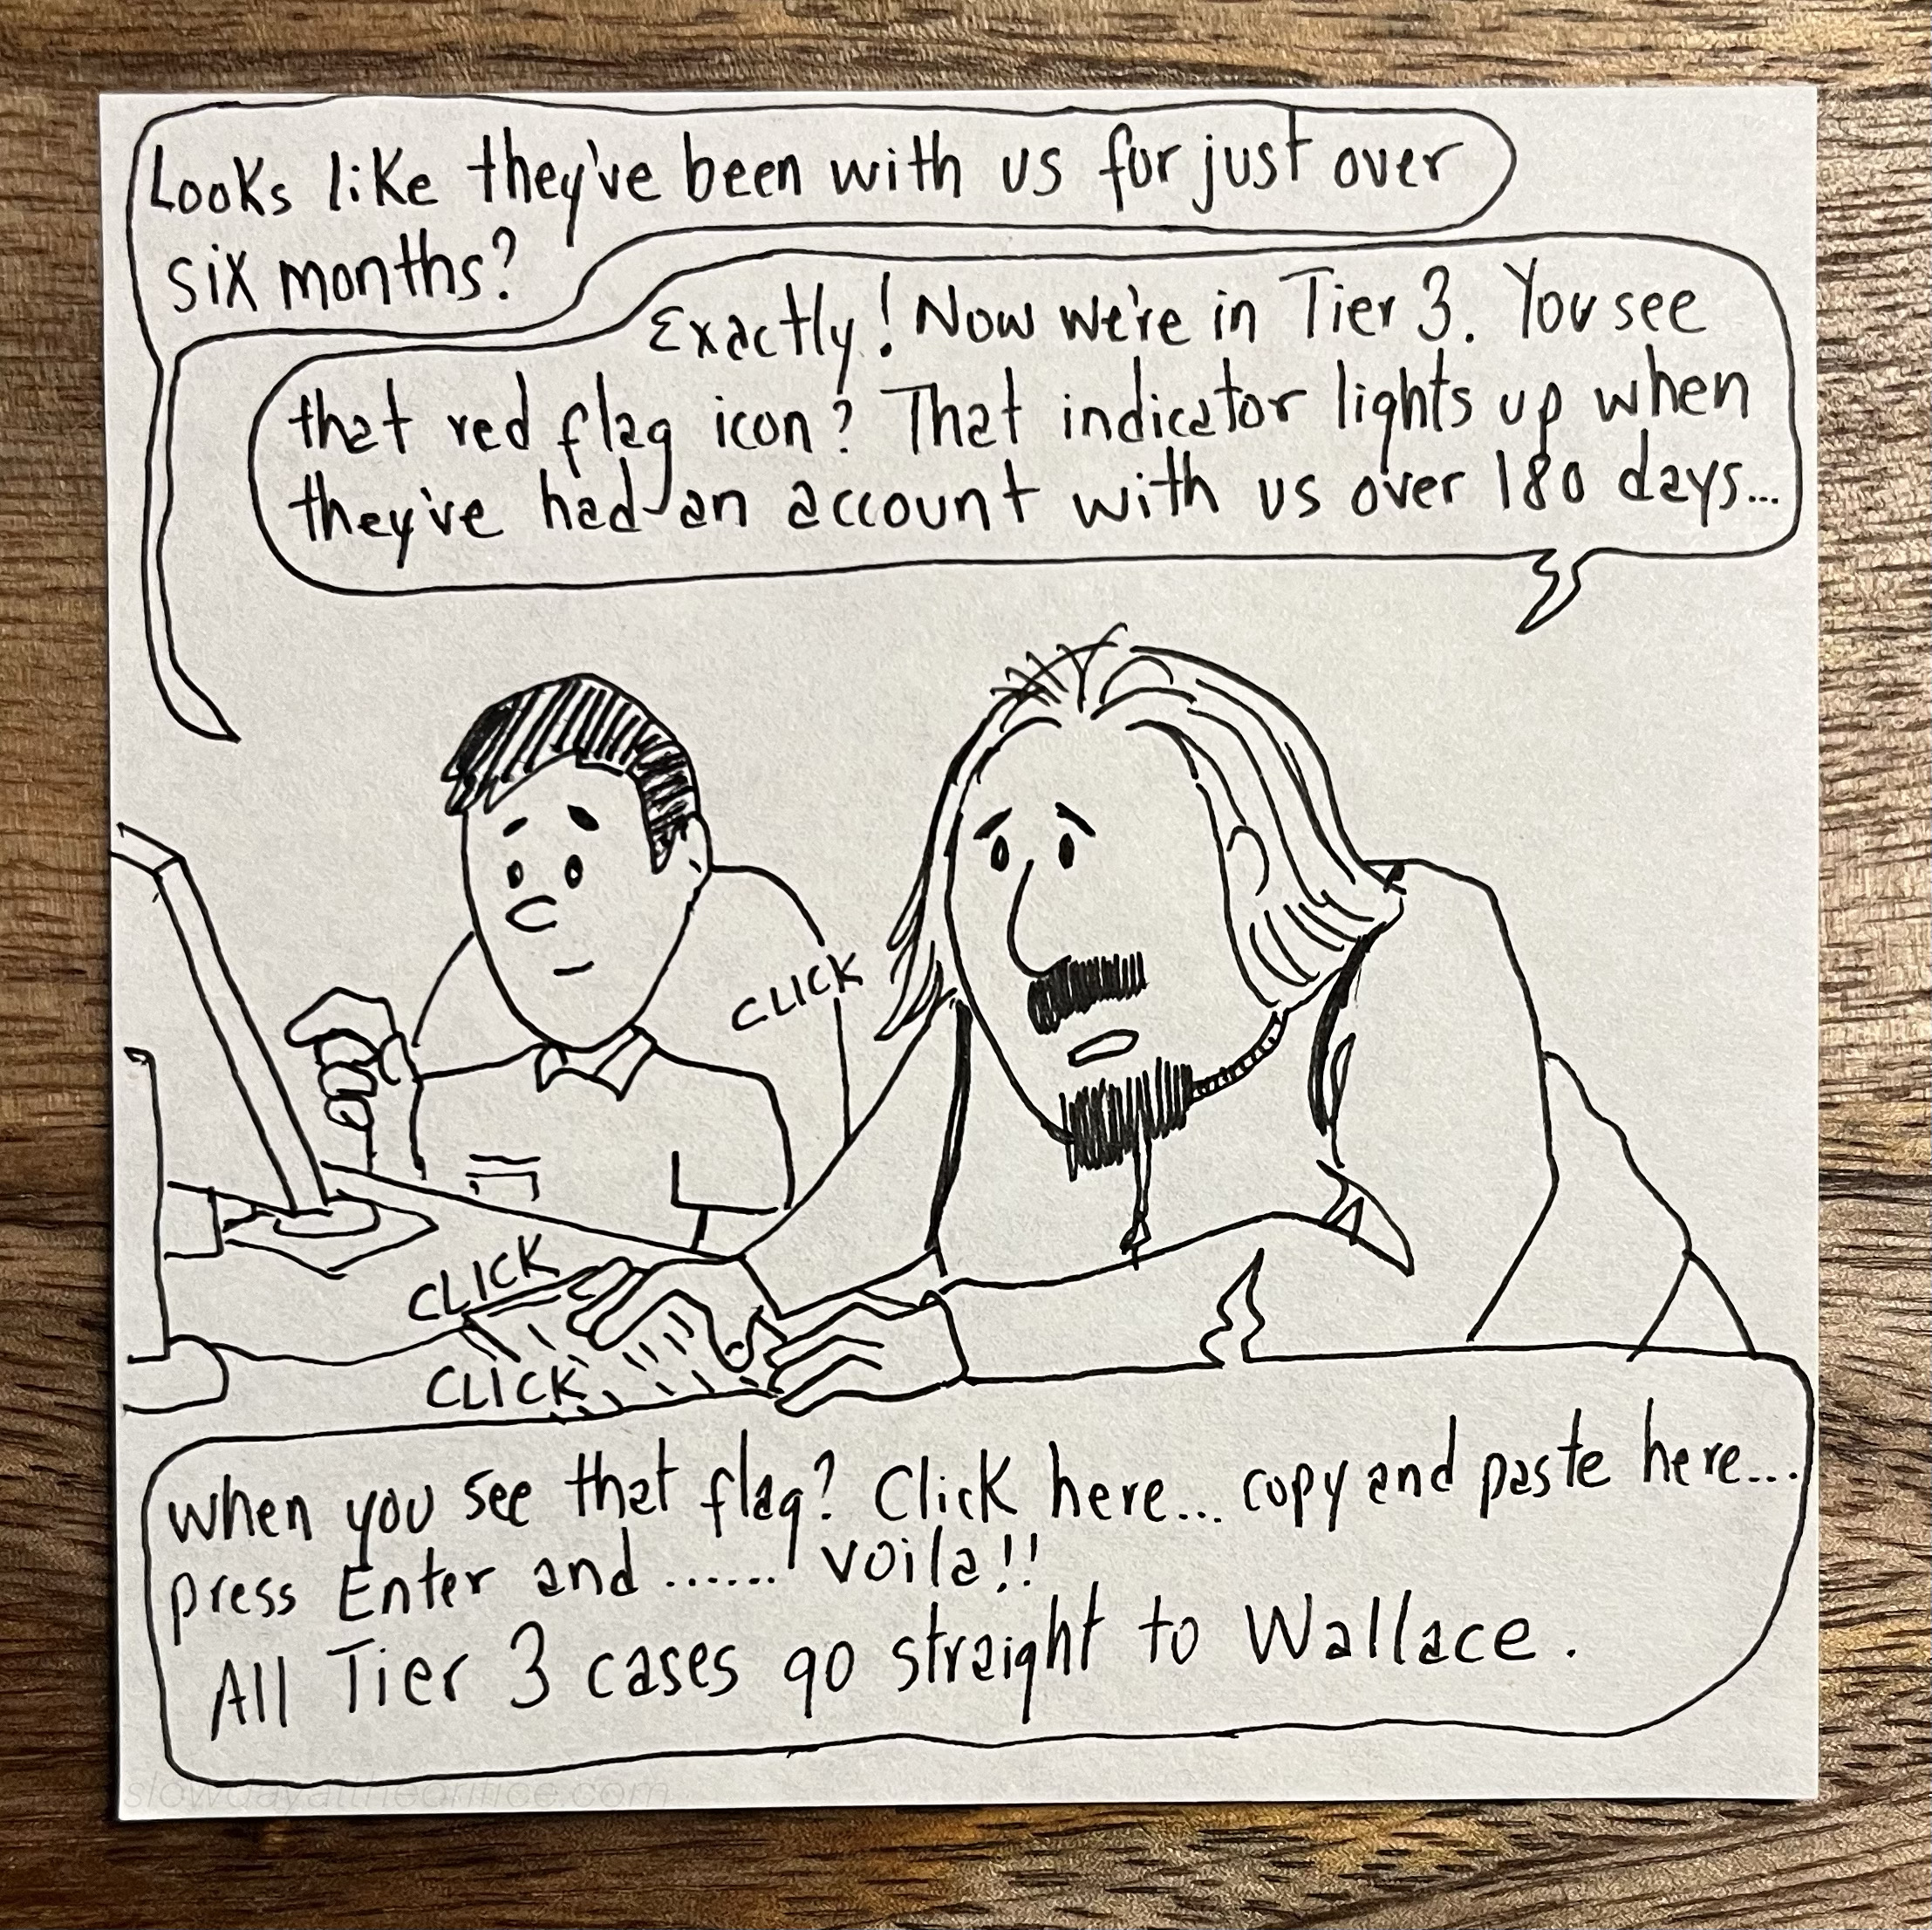 Looks like they've been with us for just over
six months?
Exactly! Now we're in Tier 3. You see
that red flag icon? That indicator lights up when
they've had an account with us over 180 days...
CLICK
CLICK
CLICK
when you see that flag? Click here... copy and paste here...
press Enter and ...... voila!!
All Tier 3 cases go straight to Wallace.
slowdayattheorifice.com